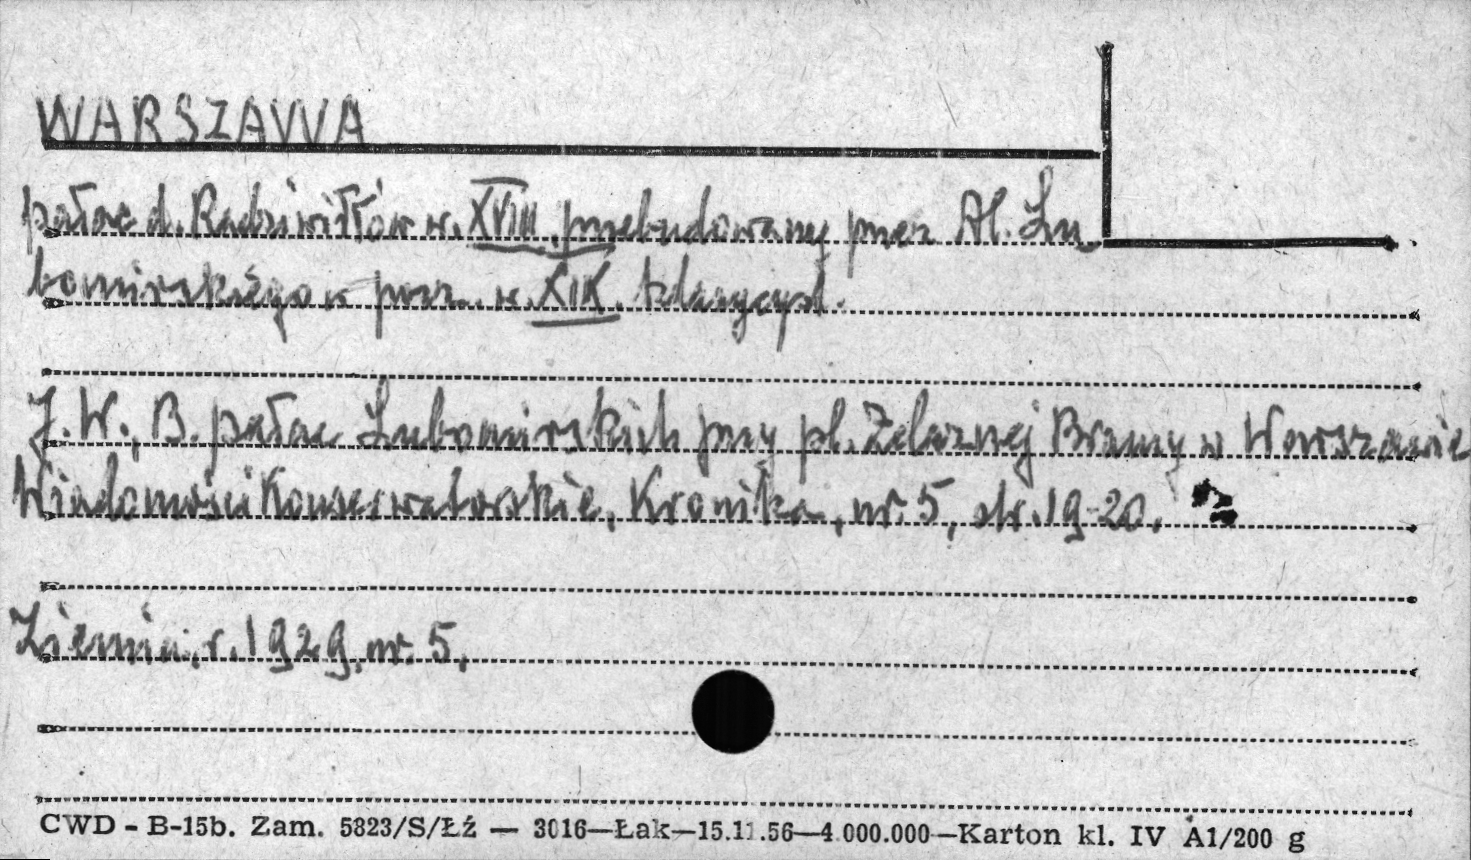 WARSZAWA
pałac d. Radziwiłłów w. XVIII, przebudowany przez Al. Lu-
bomirskiego w pocz. w. XIX.
J. W., B. pałac Lubomirskich przy pl. Żelaznej Bramy w Warszawie
Wiadomości Konserwatorskie, Kronika, nr. 5, str. 19-20.
Ziemia, r. 1929, nr. 5.
CWD - B-15b. Zam. 5823/S/Łź — 3016—Łak—15.11.56—4.000.000—Karton kl. IV A1/200 g